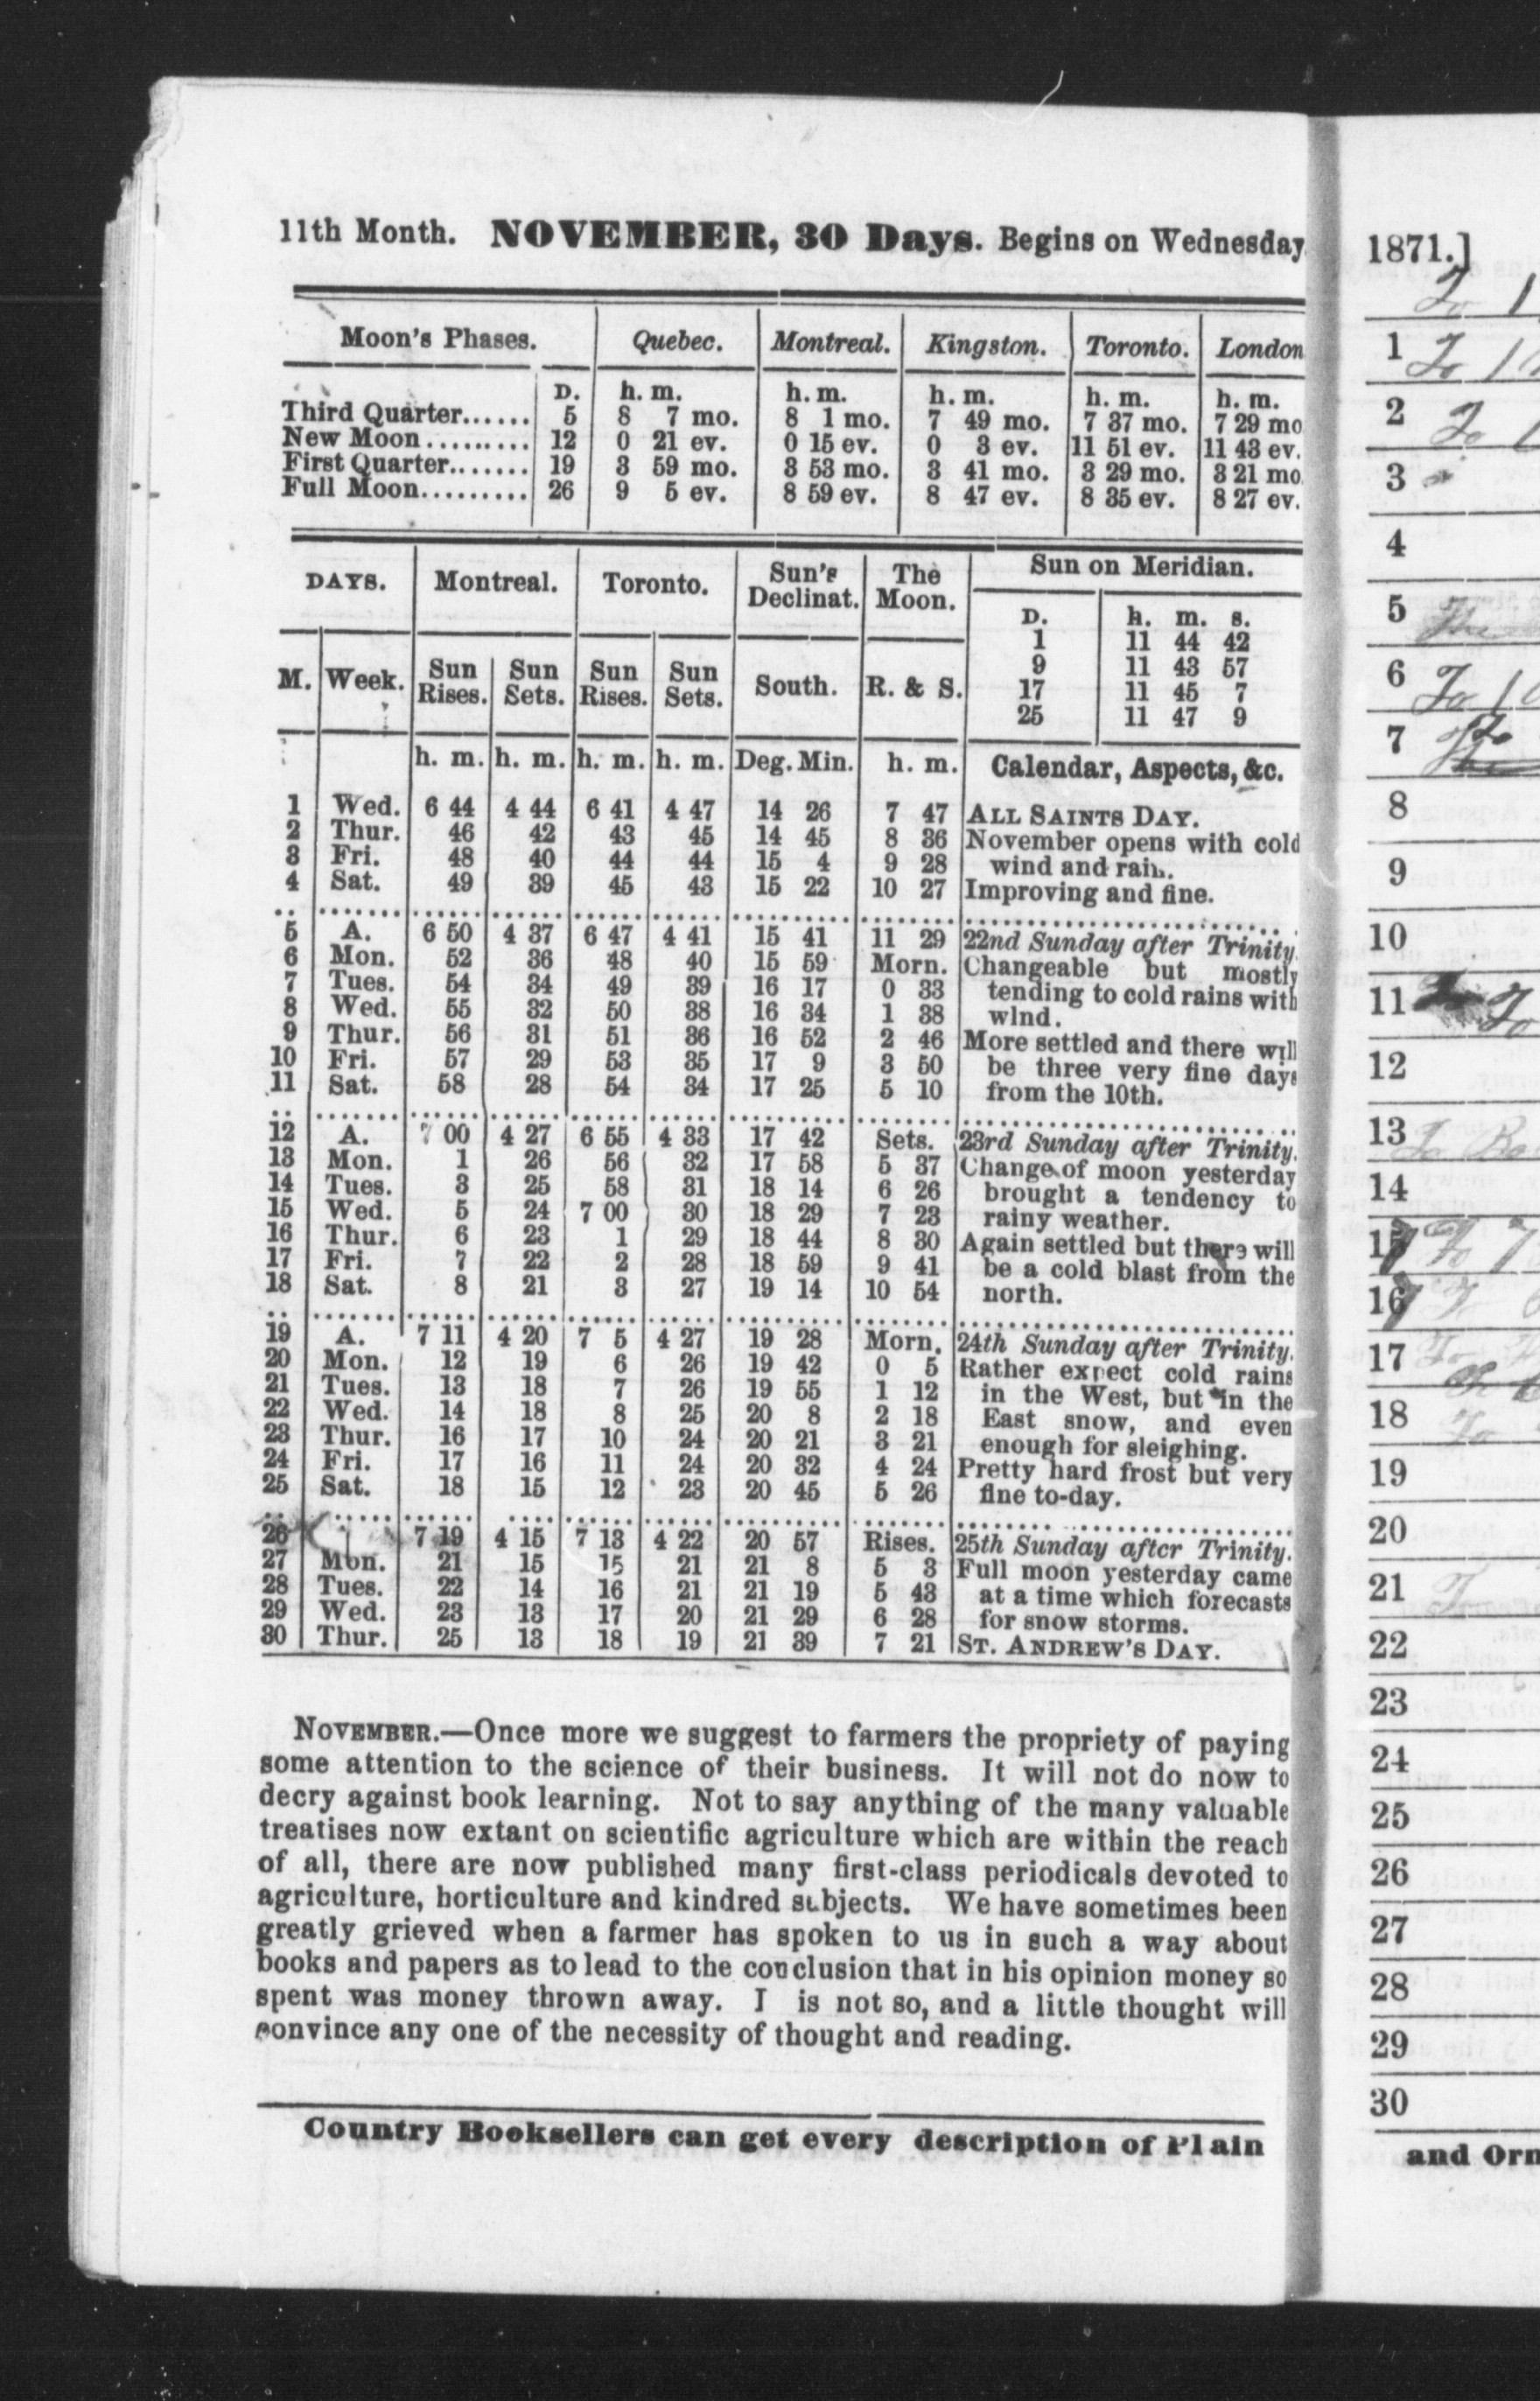 11th Month. NOVEMBER, 30 Days. Begins on Wednesday
Moon's Phases. Quebec. Montreal. Kingston. Toronto. London
D. h. m. h. m. h. m. h. m. h. m.
Third Quarter...... 5 8 7 mo. 8 1 mo. 7 49 mo. 7 37 mo. 7 29 mo
New Moon.......... 12 0 21 ev. 0 15 ev. 0 3 ev. 11 51 ev. 11 43 ev.
First Quarter....... 19 3 59 mo. 3 53 mo. 3 41 mo. 3 29 mo. 3 21 mo
Full Moon......... 26 9 5 ev. 8 59 ev. 8 47 ev. 8 35 ev. 8 27 ev.
DAYS. Montreal. Toronto. Sun's Declinat. The Moon. Sun on Meridian.
D. h. m. s.
1 11 44 42
9 11 43 57
17 11 45 7
25 11 47 9
M. Week. Sun Rises. Sun Sets. Sun Rises. Sun Sets. South. R. & S.
h. m. h. m. h. m. h. m. Deg. Min. h. m. Calendar, Aspects, &c.
1 Wed. 6 44 4 44 6 41 4 47 14 26 7 47 ALL SAINTS DAY.
2 Thur. 46 42 43 45 14 45 8 36 November opens with cold
3 Fri. 48 40 44 44 15 4 9 28 wind and rain.
4 Sat. 49 39 45 43 15 22 10 27 Improving and fine.
5 A. 6 50 4 37 6 47 4 41 15 41 11 29 22nd Sunday after Trinity.
6 Mon. 52 36 48 40 15 59 Morn. Changeable but mostly
7 Tues. 54 34 49 39 16 17 0 33 tending to cold rains with
8 Wed. 55 32 50 38 16 34 1 38 wind.
9 Thur. 56 31 51 36 16 52 2 46 More settled and there will
10 Fri. 57 29 53 35 17 9 3 50 be three very fine days
11 Sat. 58 28 54 34 17 25 5 10 from the 10th.
12 A. 7 00 4 27 6 55 4 33 17 42 Sets. 23rd Sunday after Trinity.
13 Mon. 1 26 56 32 17 58 5 37 Change of moon yesterday
14 Tues. 3 25 58 31 18 14 6 26 brought a tendency to
15 Wed. 5 24 7 00 30 18 29 7 23 rainy weather.
16 Thur. 6 23 1 29 18 44 8 30 Again settled but there will
17 Fri. 7 22 2 28 18 59 9 41 be a cold blast from the
18 Sat. 8 21 3 27 19 14 10 54 north.
19 A. 7 11 4 20 7 5 4 27 19 28 Morn. 24th Sunday after Trinity.
20 Mon. 12 19 6 26 19 42 0 5 Rather expect cold rains
21 Tues. 13 18 7 26 19 55 1 12 in the West, but in the
22 Wed. 14 18 8 25 20 8 2 18 East snow, and even
23 Thur. 16 17 10 24 20 21 3 21 enough for sleighing.
24 Fri. 17 16 11 24 20 32 4 24 Pretty hard frost but very
25 Sat. 18 15 12 23 20 45 5 26 fine to-day.
26 7 19 4 15 7 13 4 22 20 57 Rises. 25th Sunday after Trinity.
27 Mon. 21 15 15 21 21 8 5 3 Full moon yesterday came
28 Tues. 22 14 16 21 21 19 5 43 at a time which forecasts
29 Wed. 23 13 17 20 21 29 6 28 for snow storms.
30 Thur. 25 13 18 19 21 39 7 21 ST. ANDREW'S DAY.
NOVEMBER.—Once more we suggest to farmers the propriety of paying
some attention to the science of their business. It will not do now to
decry against book learning. Not to say anything of the many valuable
treatises now extant on scientific agriculture which are within the reach
of all, there are now published many first-class periodicals devoted to
agriculture, horticulture and kindred subjects. We have sometimes been
greatly grieved when a farmer has spoken to us in such a way about
books and papers as to lead to the conclusion that in his opinion money so
spent was money thrown away. I is not so, and a little thought will
convince any one of the necessity of thought and reading.
Country Booksellers can get every description of Plain
1871.]
1
2
3
4
5
6
7
8
9
10
11
12
13
14
15
16
17
18
19
20
21
22
23
24
25
26
27
28
29
30
and Orn